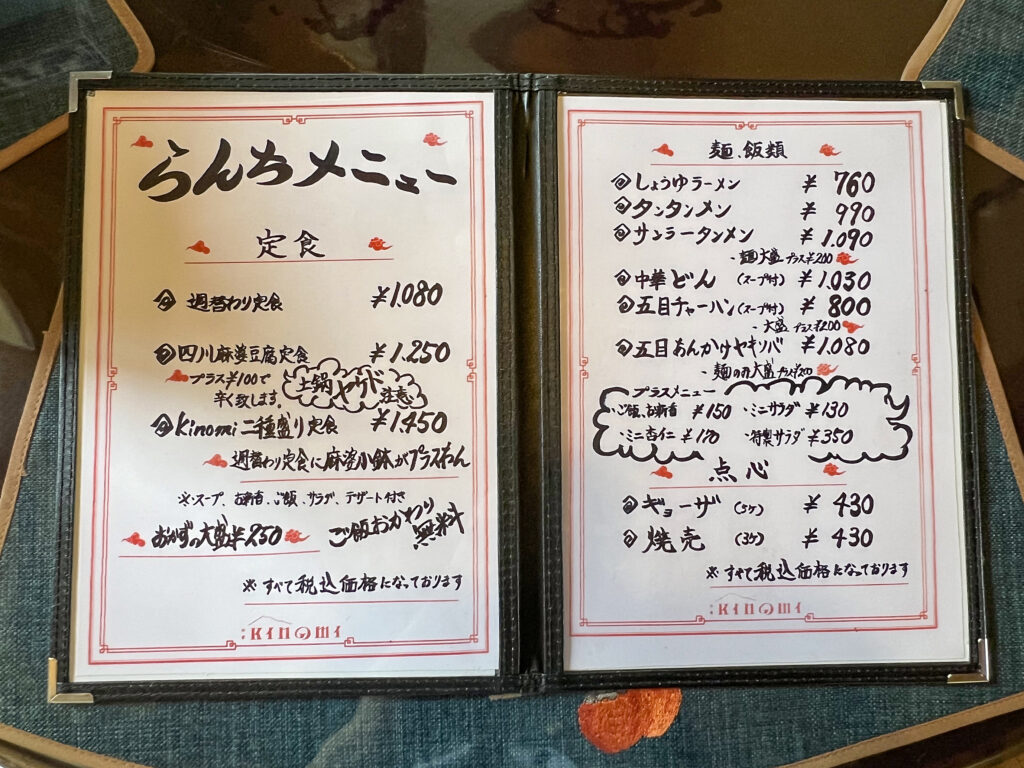 らんちメニュー
定食
週替わり定食 ¥1.080
四川麻婆豆腐定食 ¥1.250
プラス¥100で
辛く致します。
土鍋ヤケド注意
kinomi 二種盛り定食 ¥1.450
週替わり定食に麻婆小鉢がプラスわん
※スープ、お新香、ご飯、サラダ、デザート付き
おかずの大盛¥250
ご飯おかわり
無料
※すべて税込価格になっております
KINOMI
麺、飯類
しょうゆラーメン ¥ 760
タンタンメン ¥ 990
サンラータンメン ¥1.090
・麺大盛 プラス¥200
中華どん (スープ付) ¥1.030
五目チャーハン (スープ付) ¥ 800
・大盛 プラス¥200
五目あんかけヤキソバ ¥1.080
・麺のみ大盛 プラス¥200
プラスメニュー
・ご飯、お新香 ¥150 ・ミニサラダ ¥130
・ミニ杏仁 ¥170 ・特製サラダ ¥350
点心
ギョーザ (5ケ) ¥ 430
焼売 (3ケ) ¥ 430
※すべて税込価格になっております
KINOMI